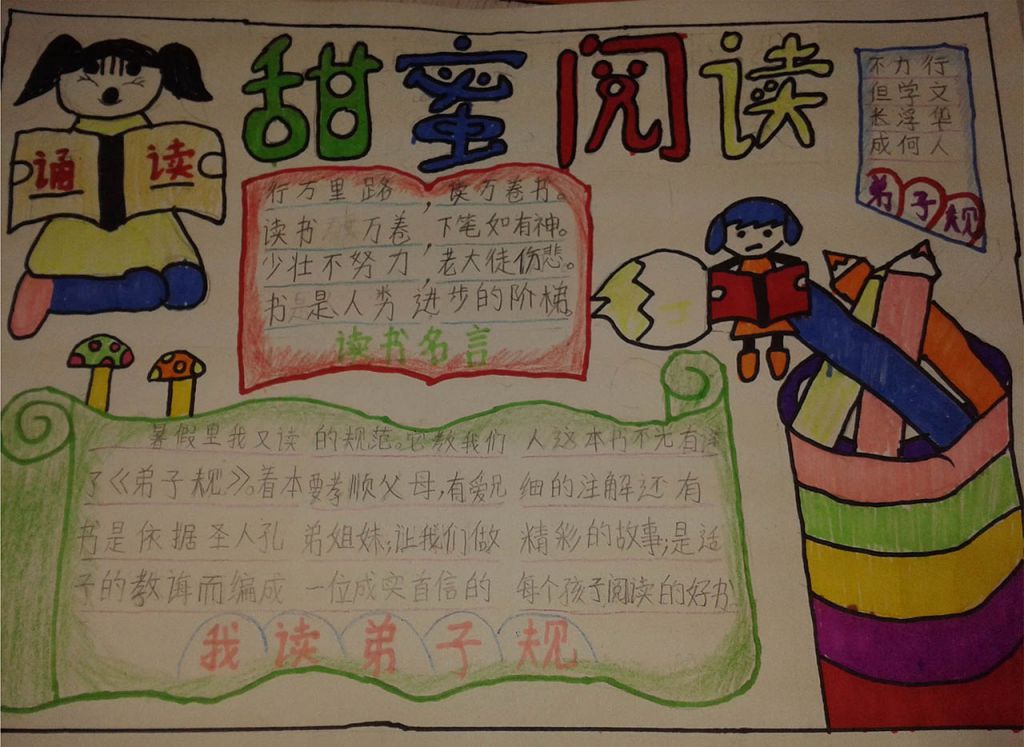 甜蜜阅读
诵读
行万里路,读万卷书。
读书万卷,下笔如有神。
少壮不努力,老大徒伤悲。
书是人类进步的阶梯。
读书名言
不力行
但学文
长浮华
成何人
弟子规
暑假里我又读
了《弟子规》。着本
书是依据圣人孔
子的教诲而编成
的规范。它教我们
要孝顺父母,有爱兄
弟姐妹;让我们做
一位成实首信的
人这本书不光有详
细的注解还有
精彩的故事;是适
每个孩子阅读的好书
我读弟子规